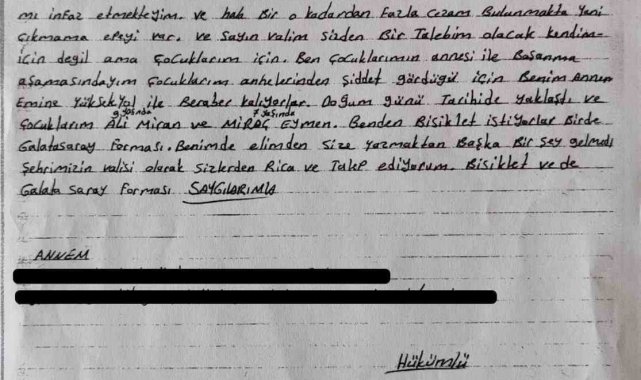 mı infaz etmekteyim. ve halı Bir o kadardan Fazla Cezam Bulunmakta Yani
Çıkmama epeyi var. ve Sayın Valim sizden Bir Talebim olacak kendim-
için değil ama çocuklarım için. Ben çocuklarımın annesi ile Boşanma
aşamasındayım çocuklarım anhelerinden şiddet gördüğü için Benim Annem
Emine Yükselyol ile Beraber kalıyorlar. Doğum günü Tarihide yaklaştı ve
9 yaşında 7 yaşında
çocuklarım Ali Miran ve MİRAÇ EYmen. Benden Bisiklet istiyorlar Birde
Galatasaray forması. Benimde elimden size yazmaktan Başka Bir şey gelmedi
Şehrimizin valisi olarak sizlerden Rica ve Talep ediyorum. Bisiklet ve de
Galata saray forması SAYGILARIMLA
ANNEM
Hükümlü